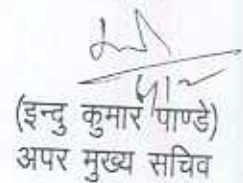 (इन्दु कुमार पाण्डे)
अपर मुख्य सचिव